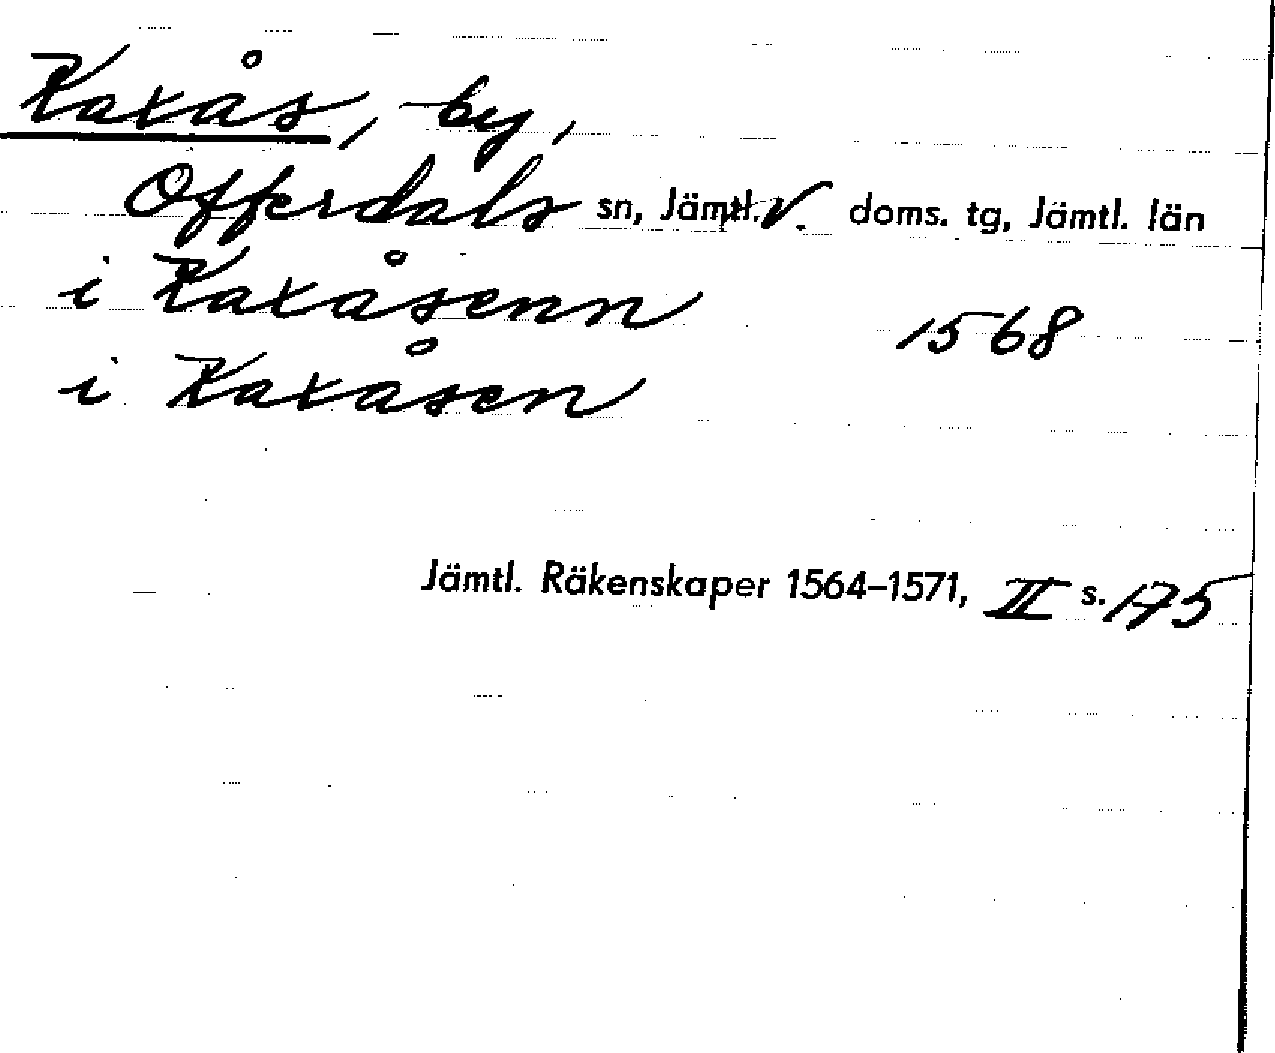 Kaxås, by,
Offerdals sn, Jämtl. V. doms. tg, Jämtl. län
i Kaxåsenn 1568
i Kaxåsen
Jämtl. Räkenskaper 1564–1571, II s. 175